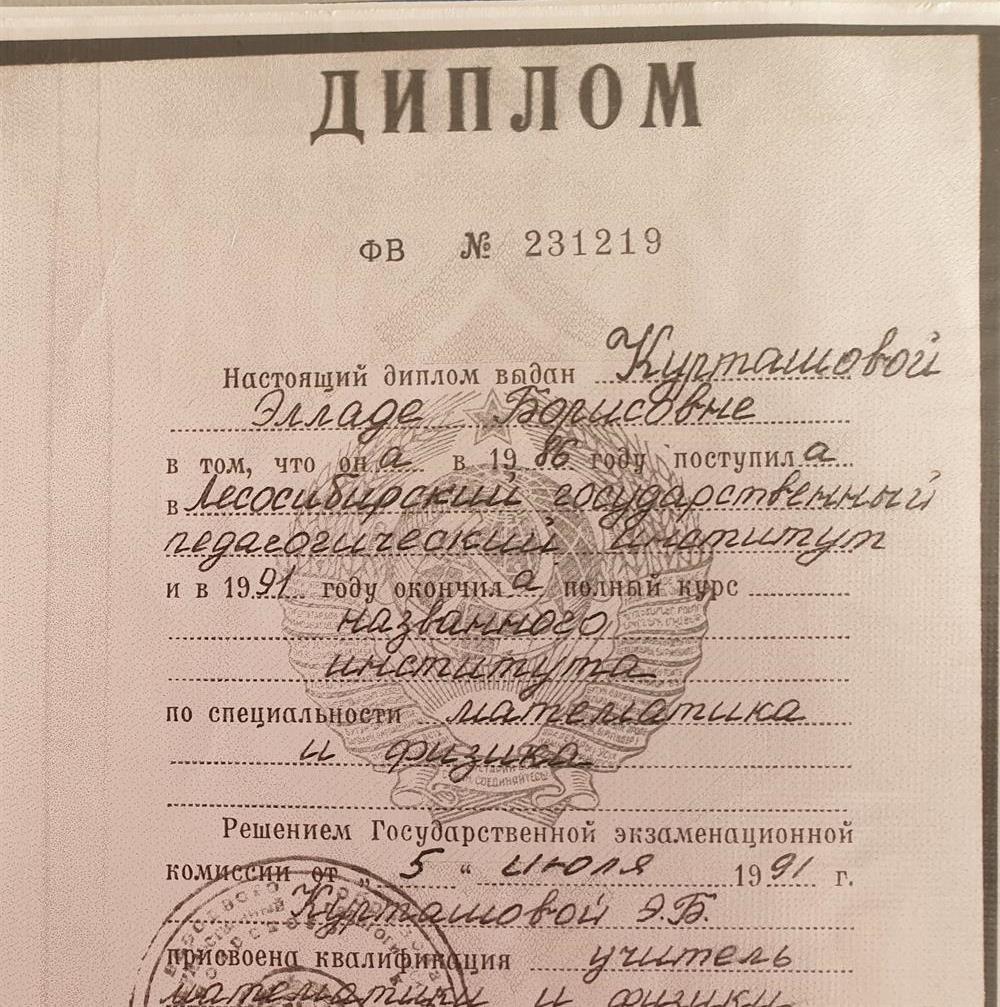 ДИПЛОМ
ФВ № 231219
Настоящий диплом выдан Курташовой
Элладе Борисовне
в том, что он а в 19 86 году поступил а
в Лесосибирский государственный
педагогический институт
и в 19 91 году окончил а полный курс
названного
института
по специальности математика
и физика
Решением Государственной экзаменационной
комиссии от „ 5 “ июля 19 91 г.
Курташовой Э.Б.
присвоена квалификация учитель
математики и физики